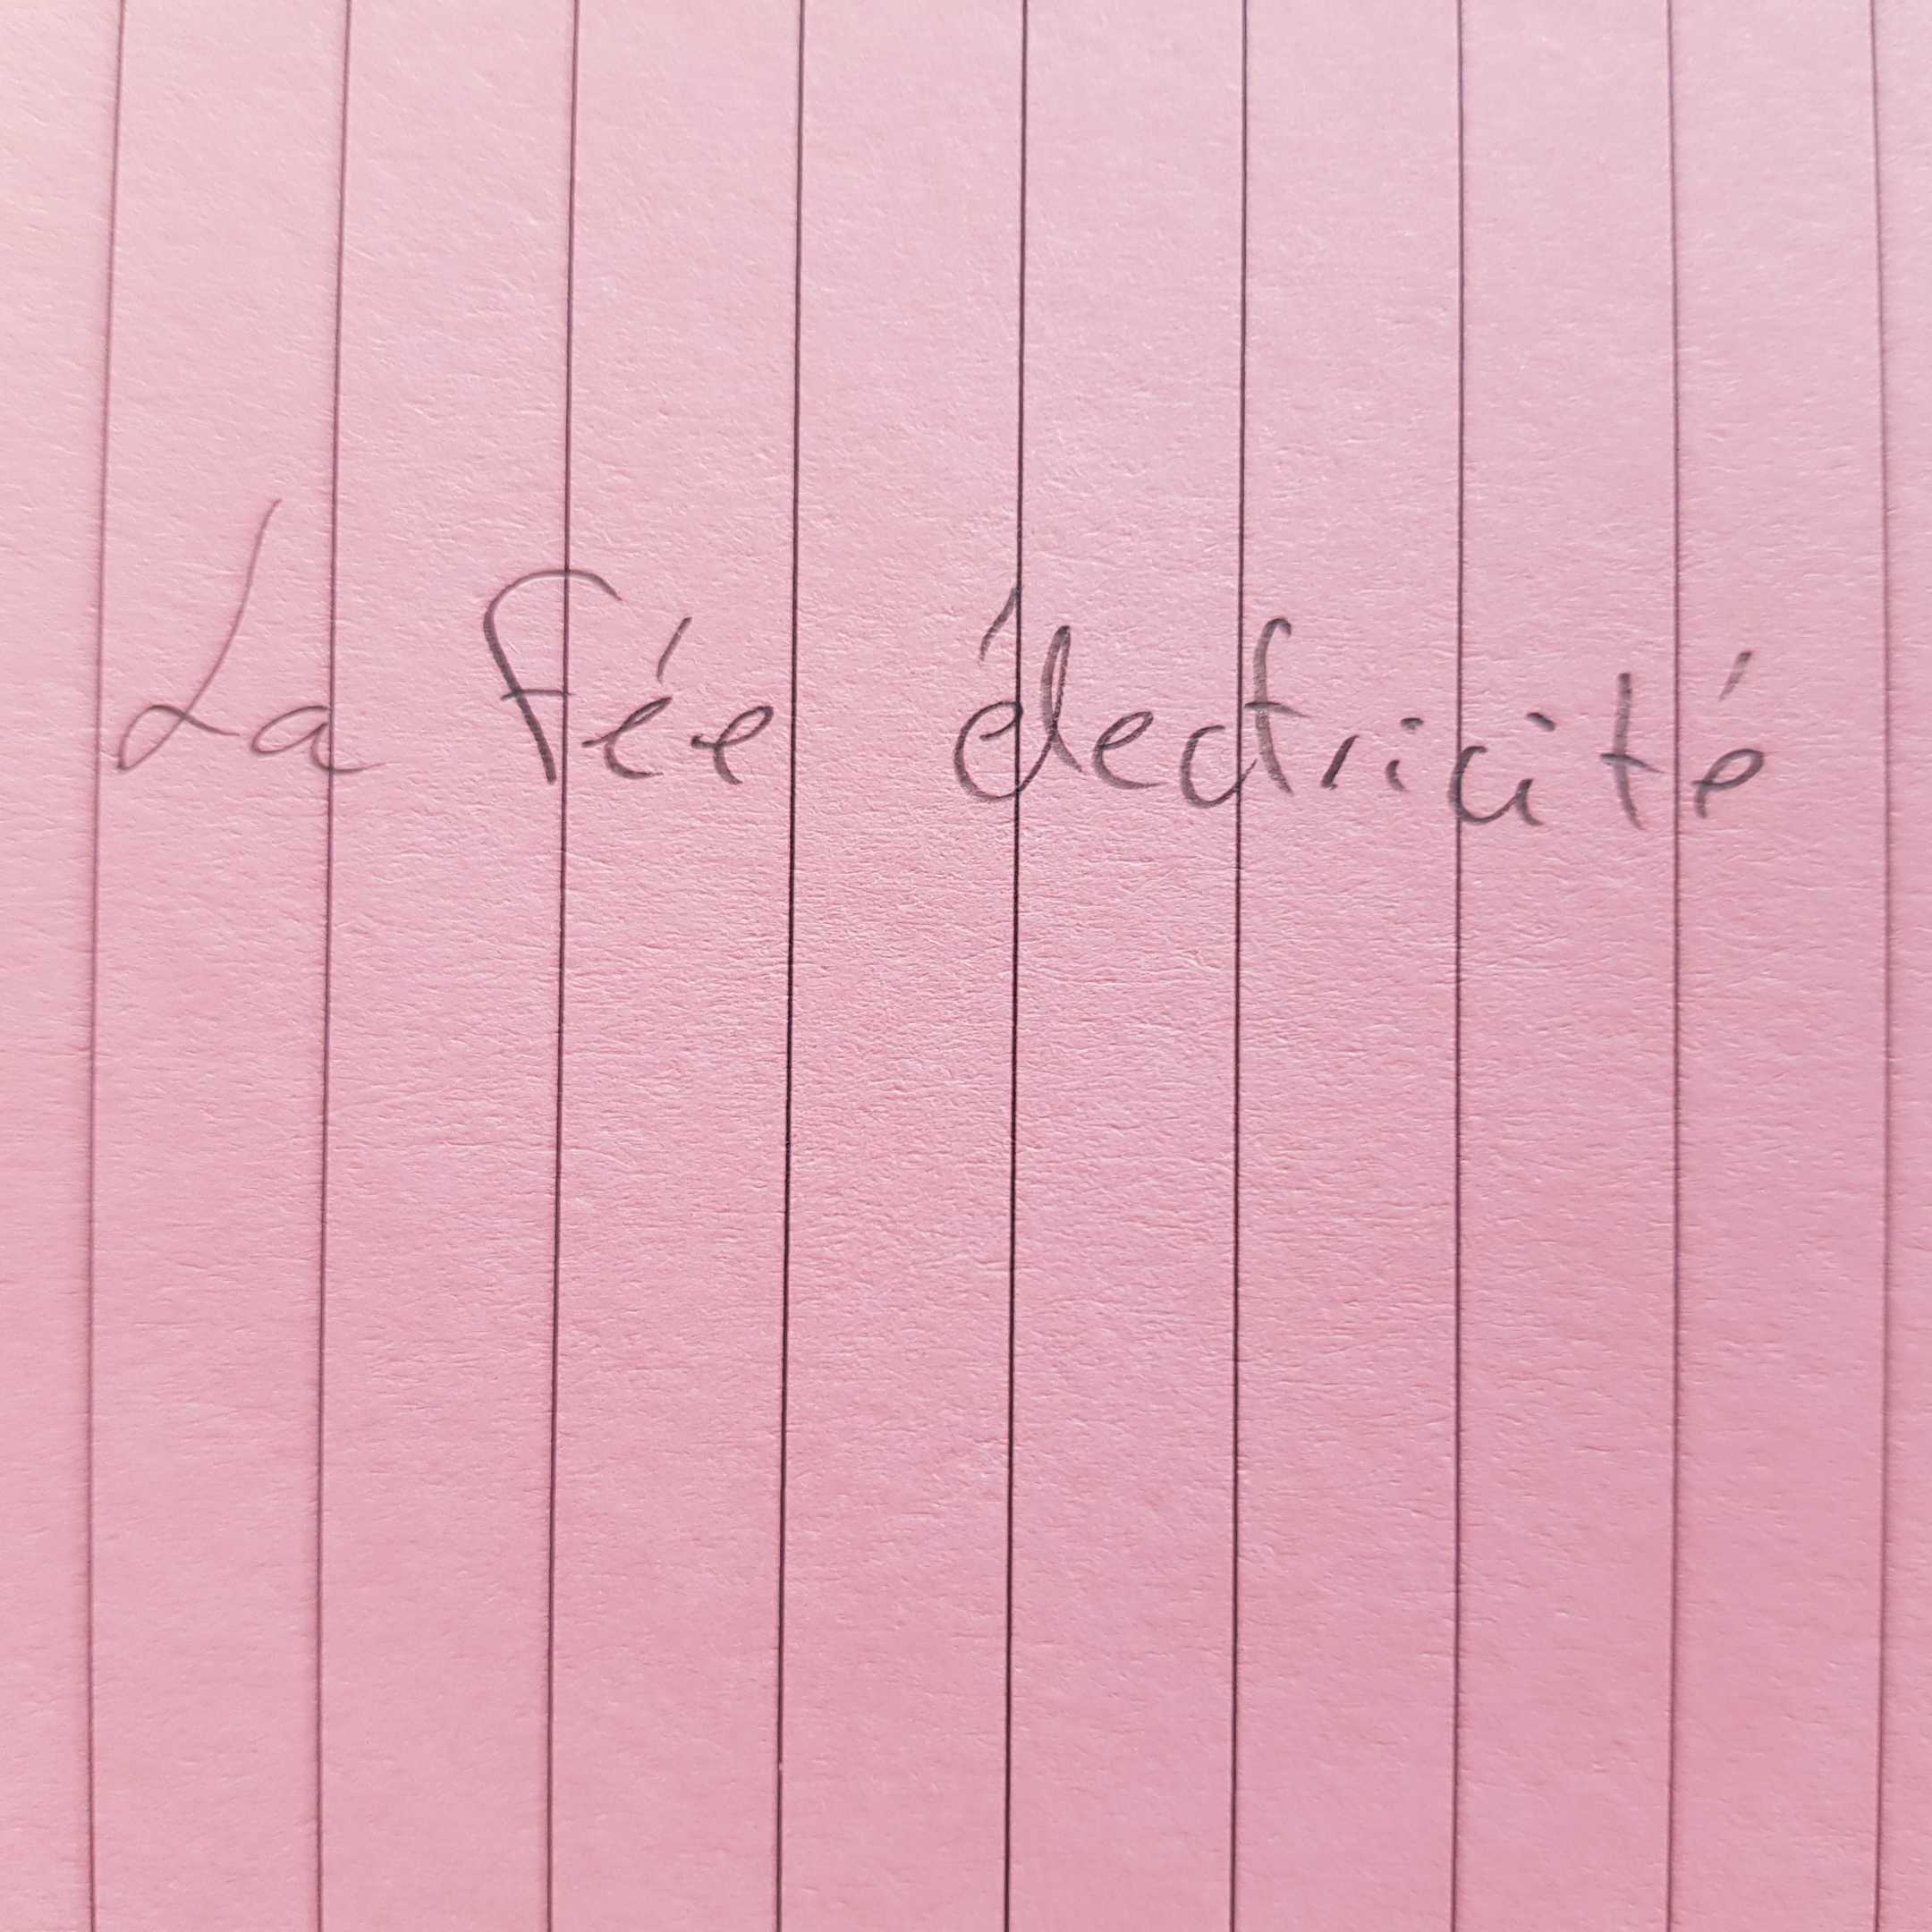 La fée électricité